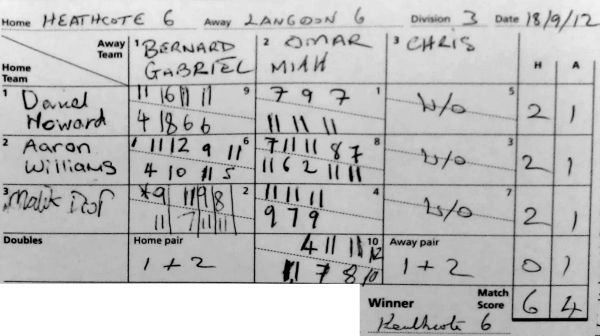 Home HEATHCOTE 6 Away LANGDON 6 Division 3 Date 18/9/12
Away Team 1 BERNARD GABRIEL 2 OMAR MIAH 3 CHRIS
Home Team H A
1 Daniel Howard 9 1 W/O 5 2 1
11 16 11 11 7 9 7
4 18 6 6 11 11 11
2 Aaron Williams 6 8 W/O 3 2 1
11 12 9 11 7 11 11 8 7
4 10 11 5 11 6 2 11 11
3 Malik 2 4 W/O 7 2 1
*9 11 9 8 11 11 11
11 7 11 11 9 7 9
Doubles Home pair 10 Away pair 0 1
1 + 2 4 11 11 12 1 + 2
11 7 8 10
Winner Match Score 6 4
Heathcote 6